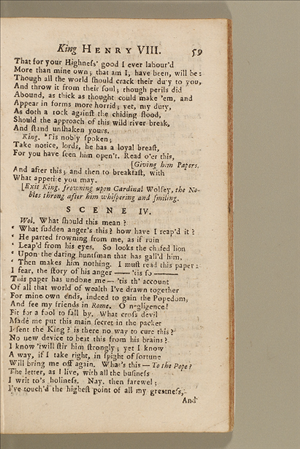 King HENRY VIII. 59
That for your Highness' good I ever labour'd
More than mine own; that am I, have been, will be:
Though all the world should crack their du'y to you,
And throw it from their soul; though perils did
Abound, as thick as thought could make 'em, and
Appear in forms more horrid; yet, my duty,
As doth a rock against the chiding flood,
Should the approach of this wild river break,
And stand unshaken yours.
King. 'Tis nobly spoken;
Take notice, lords, he has a loyal breast,
For you have seen him open't. Read o'er this,
[Giving him Papers.
And after this; and then to breakfast, with
What appetite you may.
[Exit King, frowning upon Cardinal Wolsey, the No-
bles throng after him whispering and smiling.
SCENE IV.
Wol. What should this mean?
' What sudden anger's this? how have I reap'd it?
' He parted frowning from me, as if ruin
' Leap'd from his eyes. So looks the chafed lion
' Upon the daring huntsman that has gall'd him,
' Then makes him nothing. I must read this paper:
I fear, the story of his anger —— 'tis so ——
This paper has undone me — 'tis th' account
Of all that world of wealth I've drawn together
For mine own ends, indeed to gain the Popedom,
And fee my friends in Rome. O negligence!
Fit for a fool to fall by. What cross devil
Made me put this main secret in the packet
I sent the King? is there no way to cure this?
No new device to beat this from his brains?
I know 'twill stir him strongly; yet I know
A way, if I take right, in spight of fortune
Will bring me off again. What's this — To the Pope?
The letter, as I live, with all the business
I writ to's holiness. Nay, then farewel:
I've touch'd the highest point of all my greatness,
And